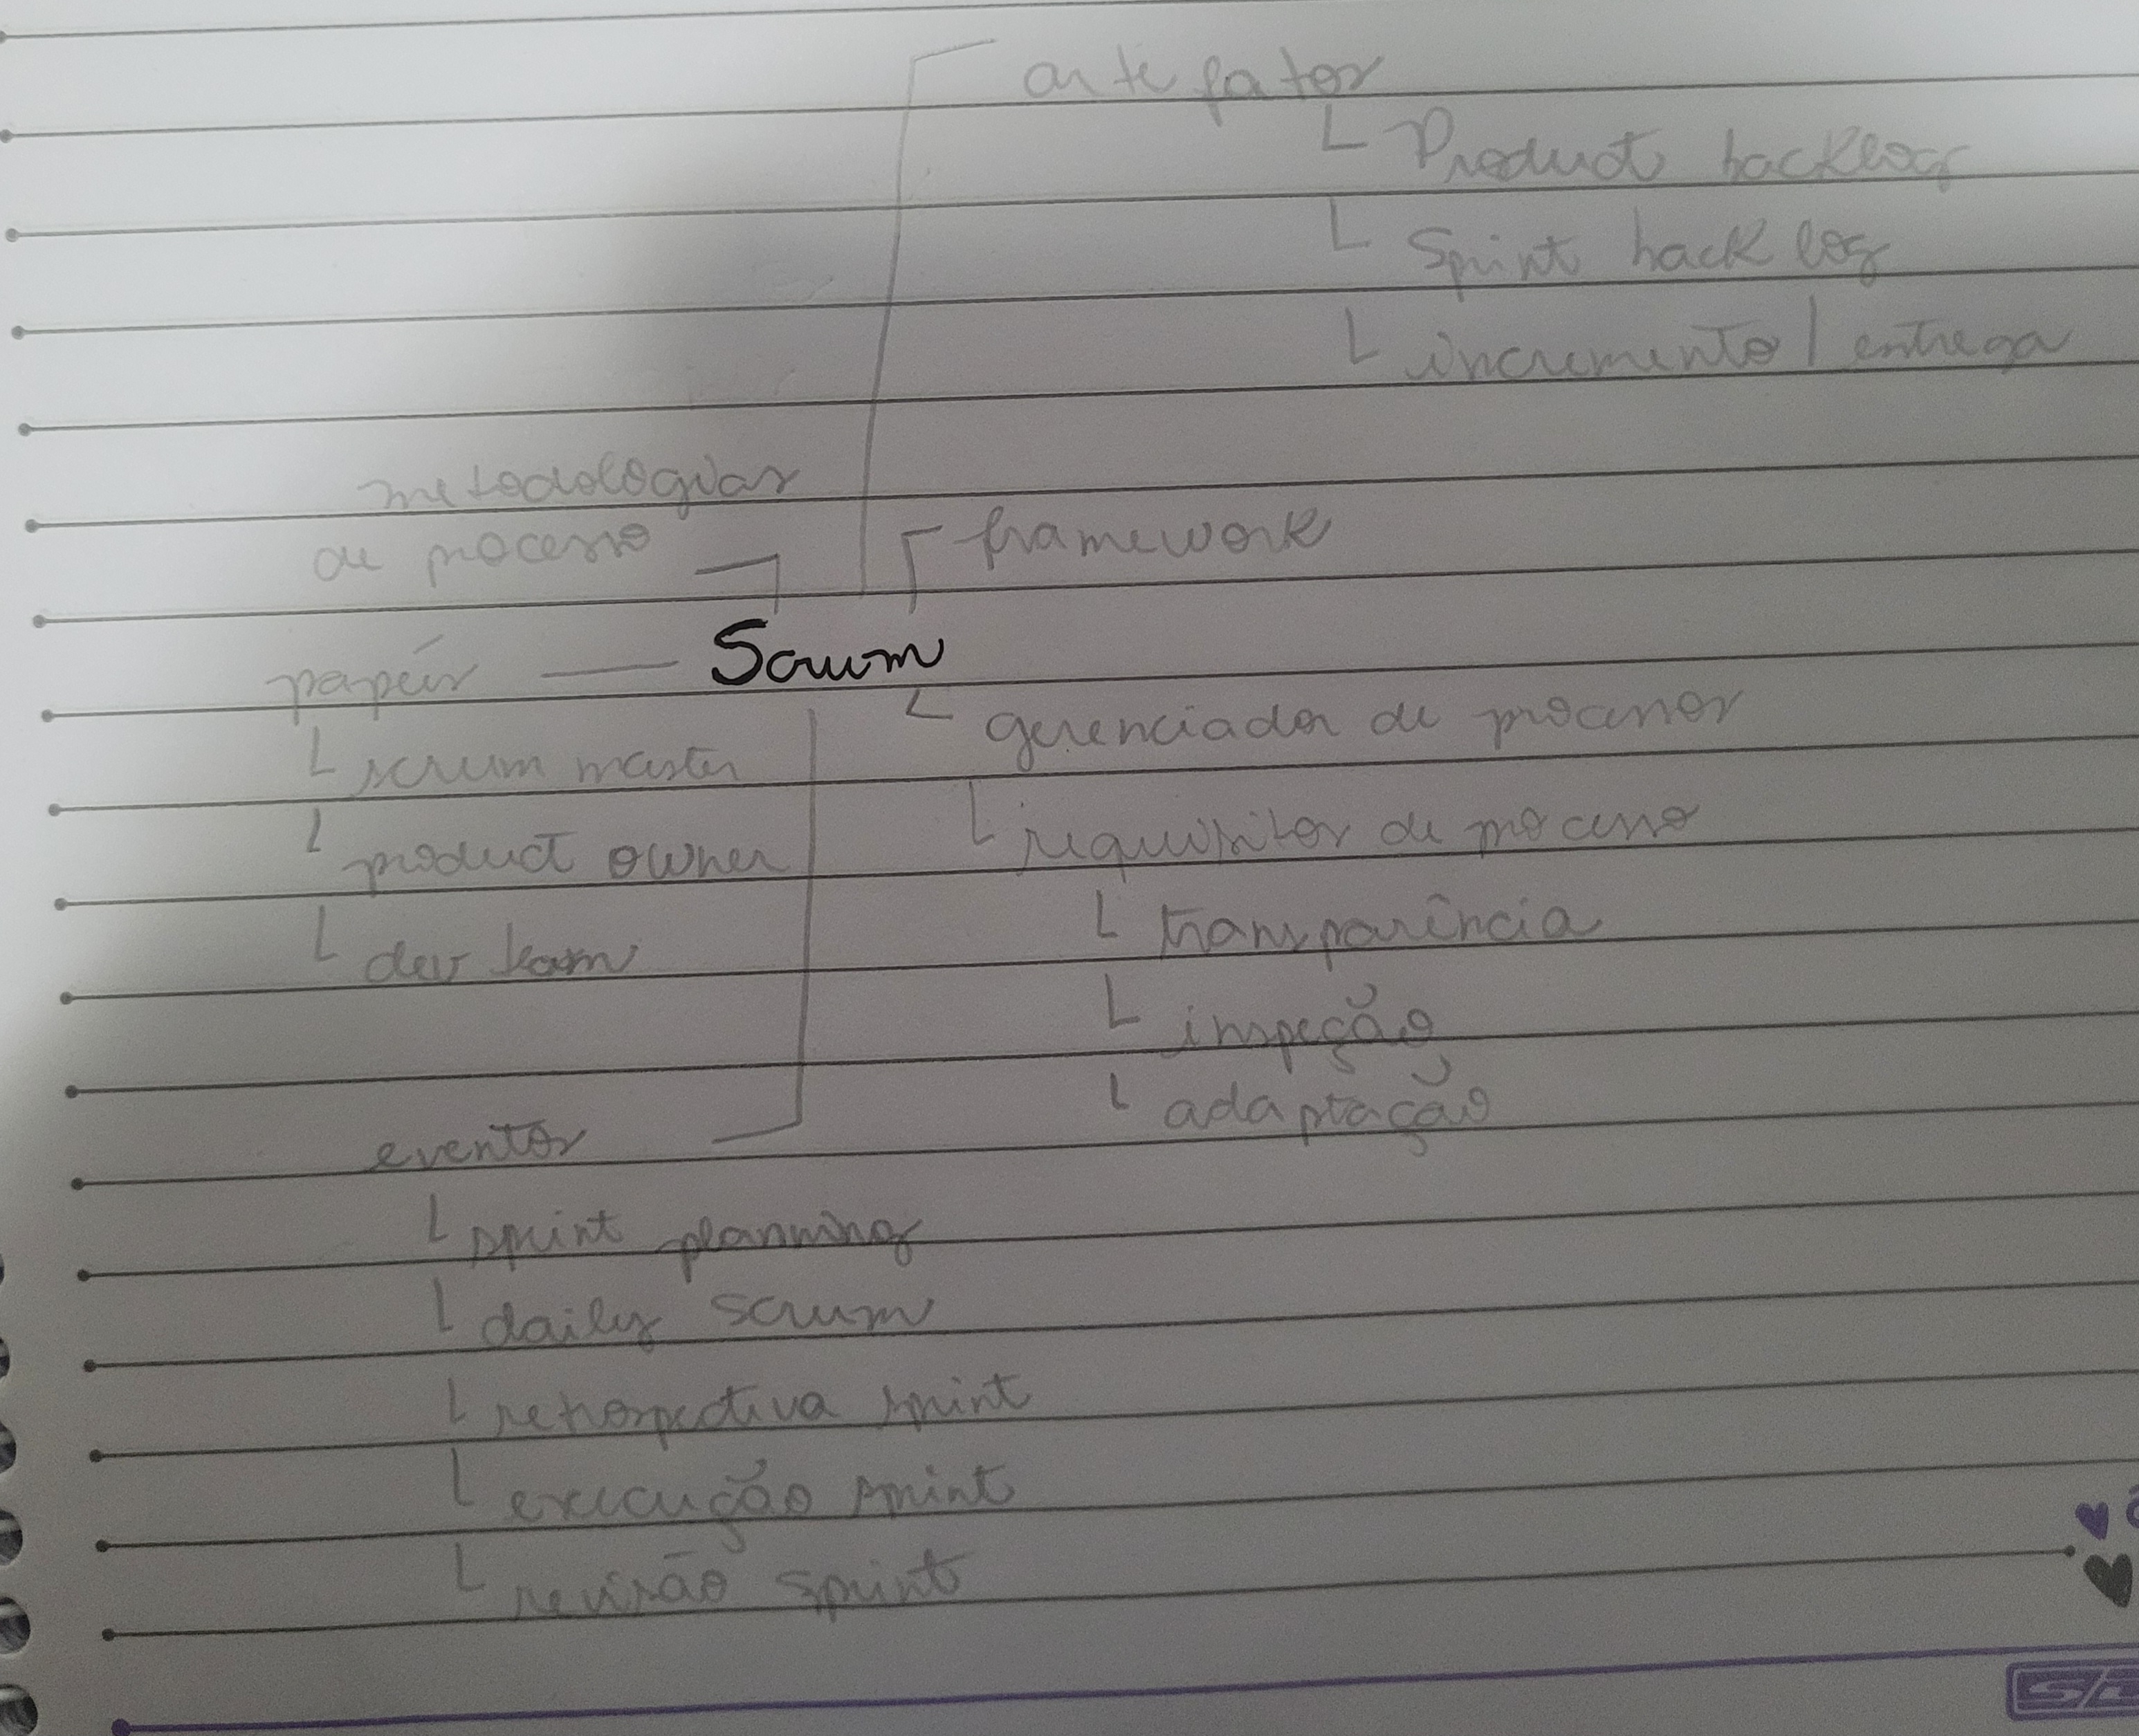 artefatos
└ Product backlog
└ Sprint backlog
└ incremento / entrega
metodologias
de processo
framework
papéis
Scrum
└ scrum master
└ product owner
└ dev team
gerenciador de processos
└ requisitos de processo
└ transparência
└ inspeção
└ adaptação
eventos
└ sprint planning
└ daily scrum
└ retrospectiva sprint
└ execução sprint
└ revisão sprint